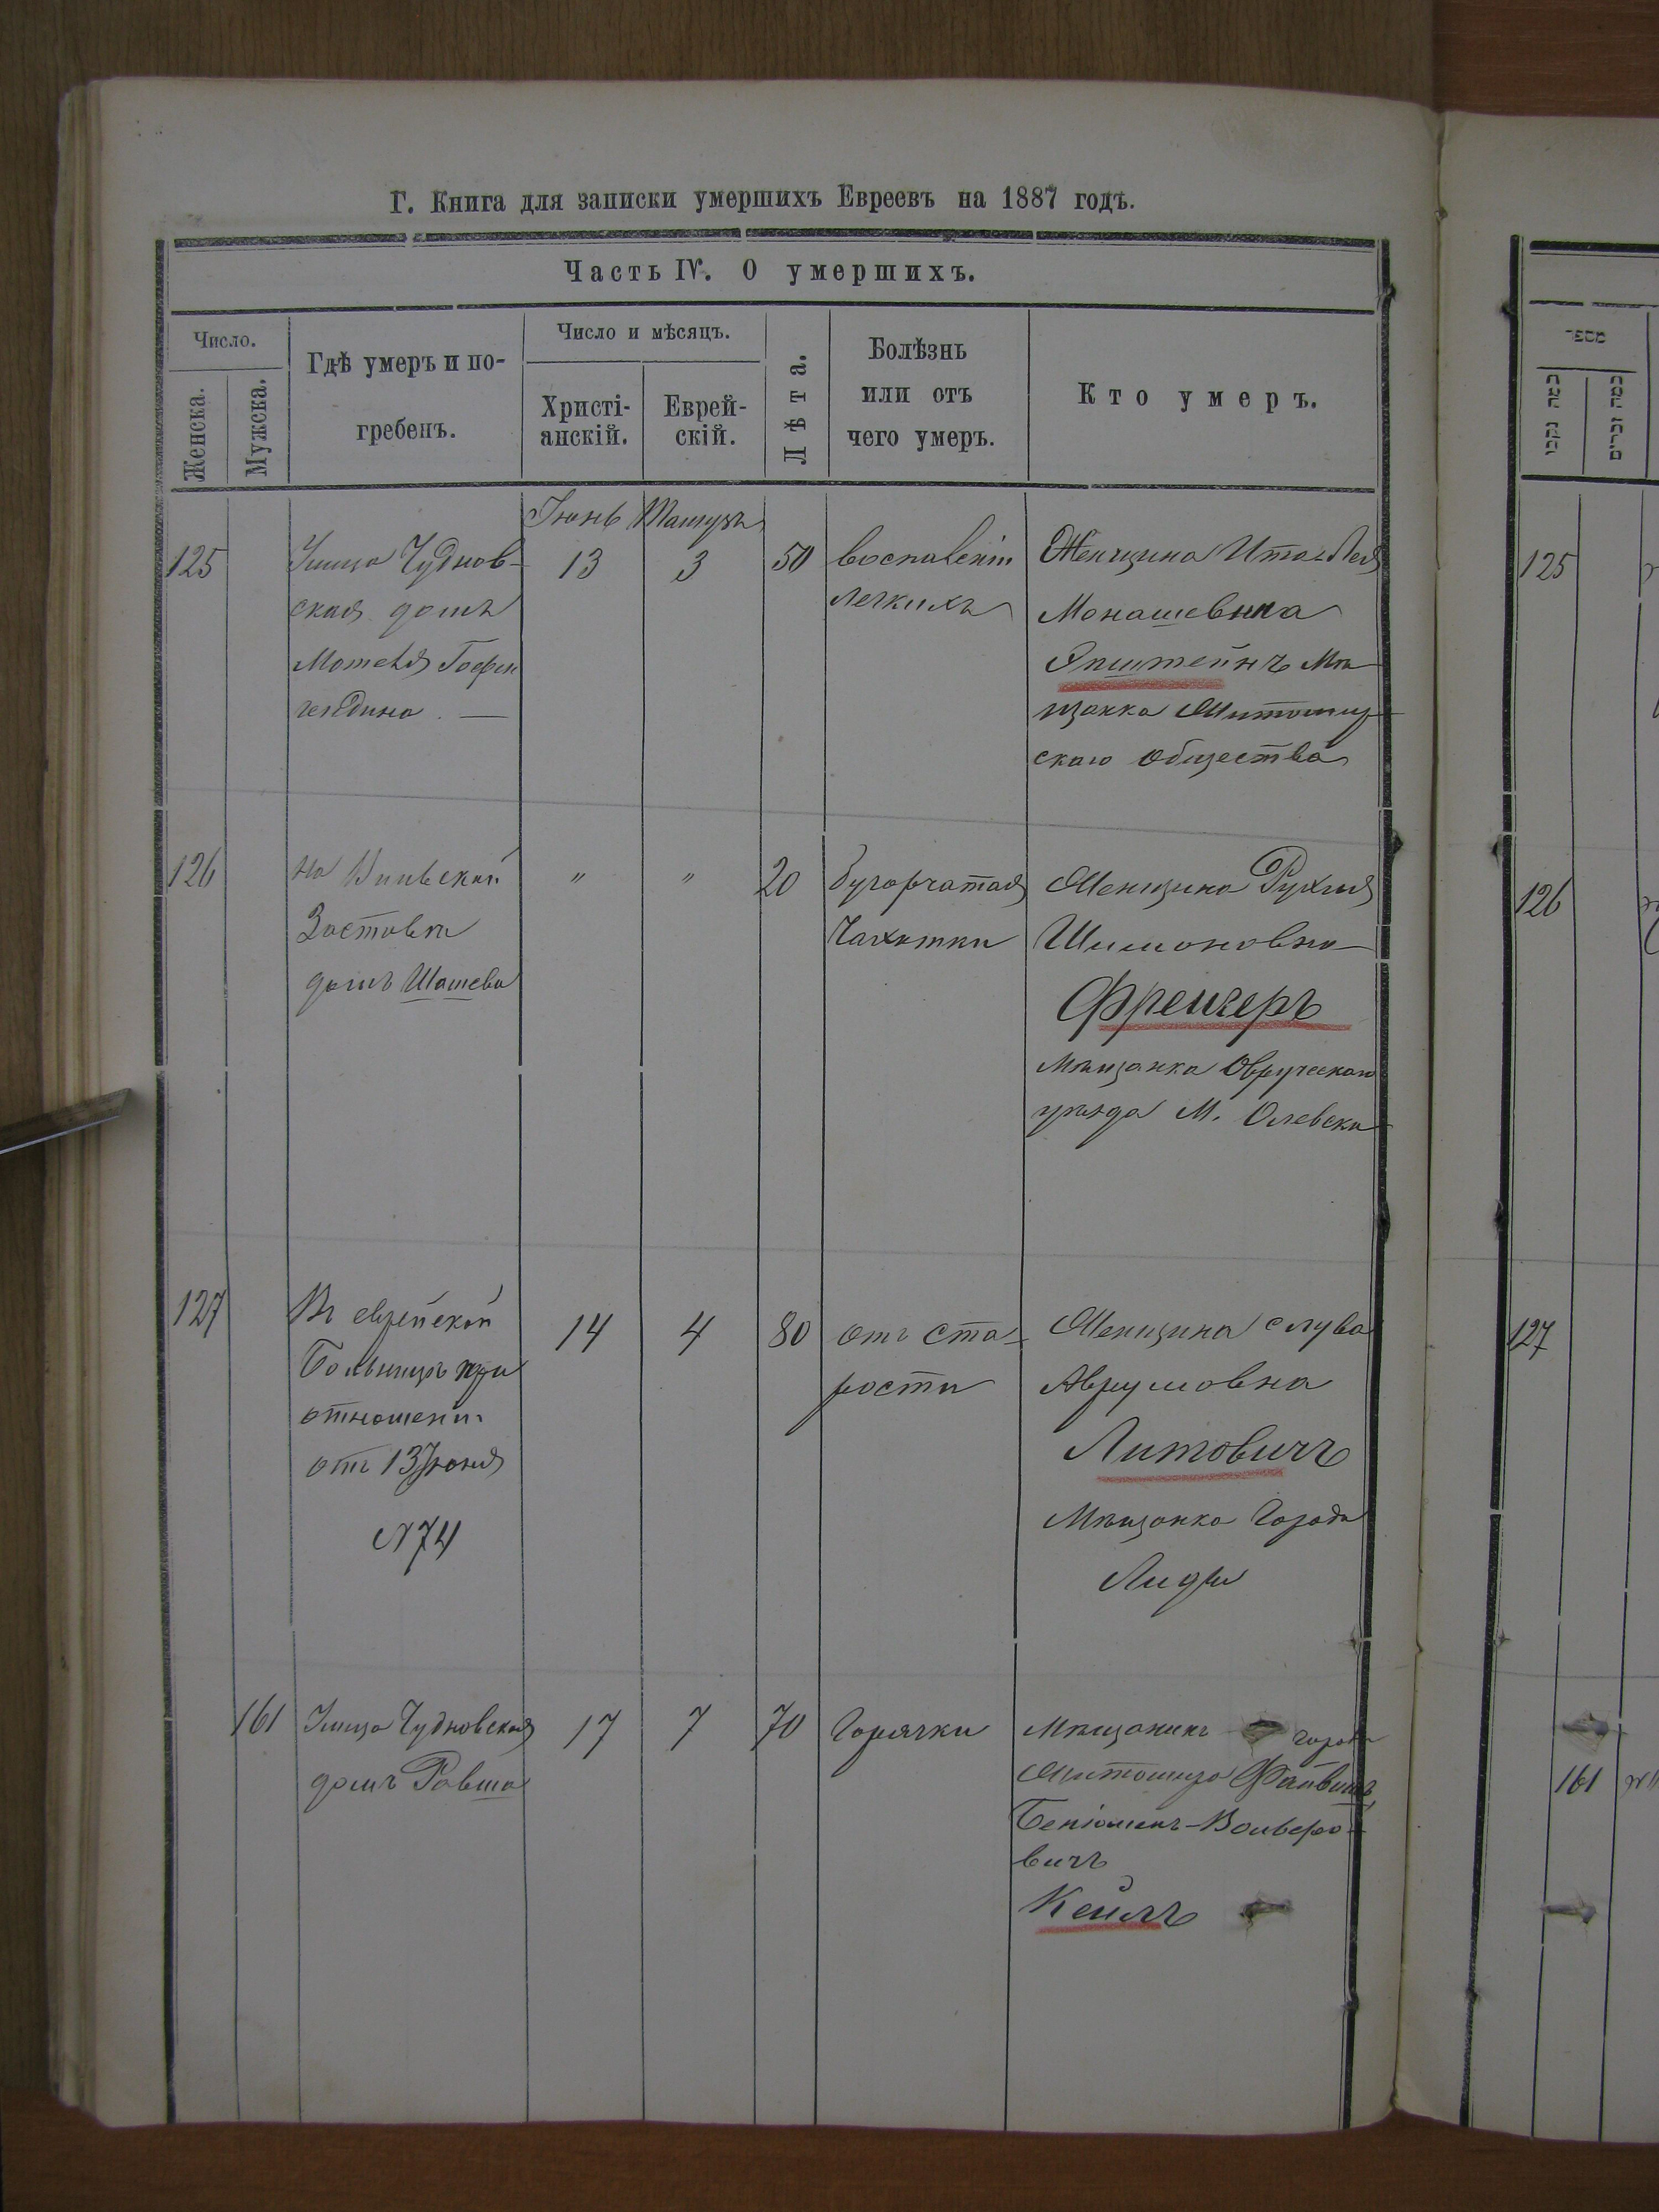 Г. Книга для записки умершихъ Евреевъ на 1887 годъ.
Часть IV. О умершихъ.
Число.
Женска.
Мужска.
Гдѣ умеръ и по-
гребенъ.
Число и мѣсяцъ.
Христі-
анскій.
Еврей-
скій.
Лѣта.
Болѣзнь
или отъ
чего умеръ.
Кто умеръ.
Іюнь Тамузъ
125
Улица Чуднов-
ская домъ
Мотеля
13
3
50
воспаленія
легкихъ
Женщина Ита-Лея
Монашевна
Эпштейнъ Мѣ-
щанка Житомир-
скаго общества
126
на Кіевской
Заставѣ
домъ
"
"
20
бугорчатая
Чахотки
Женщина Рухля
Шимоновна
Френкеръ
Мѣщанка Овручскаго
уѣзда М. Олевска
127
Въ еврейской
Больницѣ при
отношени
отъ 13 Іюня
N 74
14
4
80
отъ ста-
рости
Женщина Слува
Аврумовна
Литовичъ
Мѣщанка Города
Лиды
161
Улица Чудновская
домъ Равша
17
7
70
Горячки
Мѣщанинъ города
Житомира Файвишъ
Беніоминъ-Вольфо-
вичъ
Кейлъ
מספר
125
126
127
161